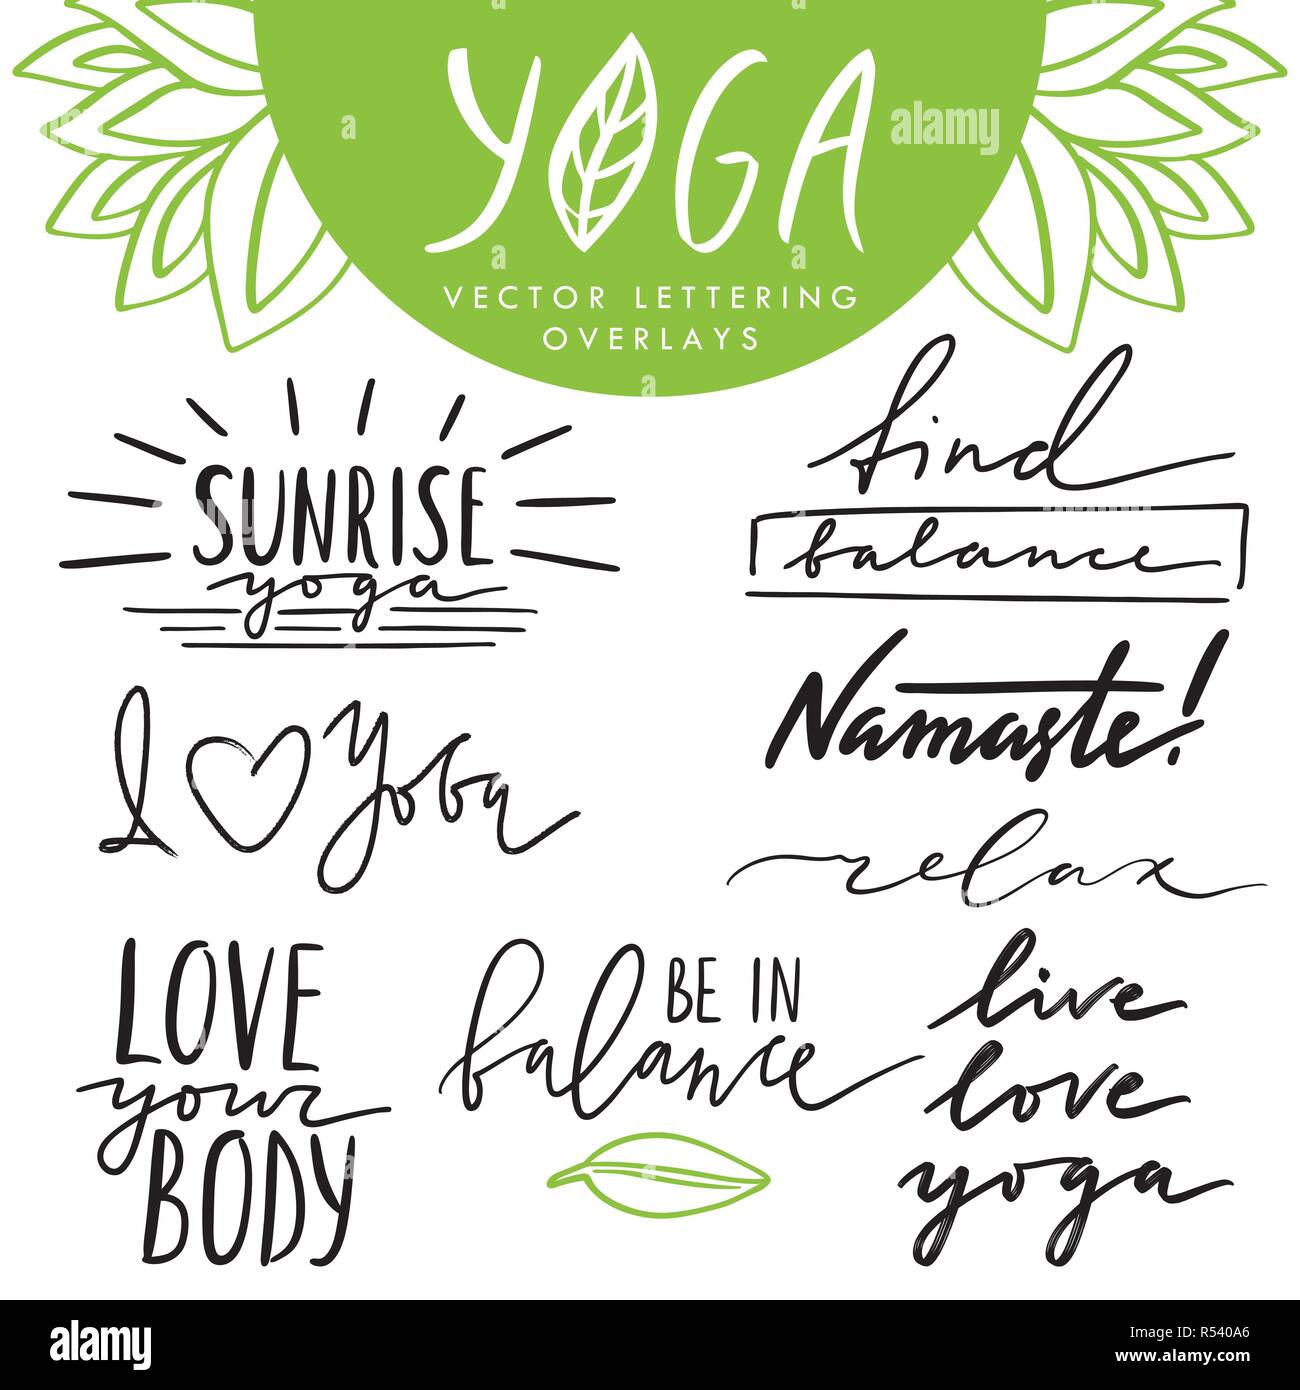 YOGA
VECTOR LETTERING
OVERLAYS
SUNRISE
yoga
find
balance
Namaste!
I Yoga
relax
LOVE
your
BODY
BE IN
balance
live
love
yoga
alamy
a
a
a
a
alamy
Image ID: R540A6
www.alamy.com